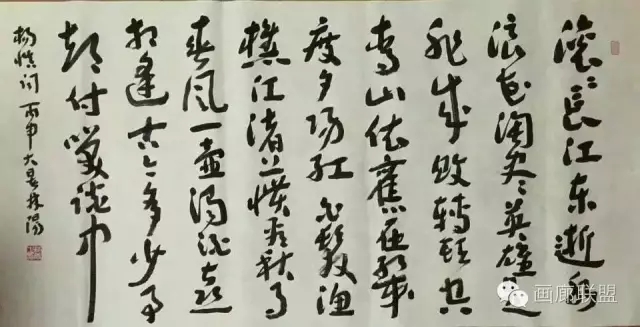 滚滚長江东逝水
浪花淘尽英雄是
非成败转头空
青山依舊在几
度夕阳红白髮渔
樵江渚上惯看秋月
春风一壶浊酒喜
相逢古今多少事
都付笑谈中
杨慎词 丙申大暑林阳
画廊联盟